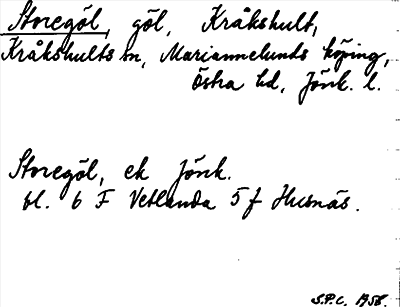 Storegöl, göl, Kråkshult,
Kråkshults sn, Mariannelunds köping,
Östra hd, Jönk. l.
Storegöl, ek Jönk.
bl. 6 F Vetlanda 5 f Husnäs.
S.P.C. 1958.